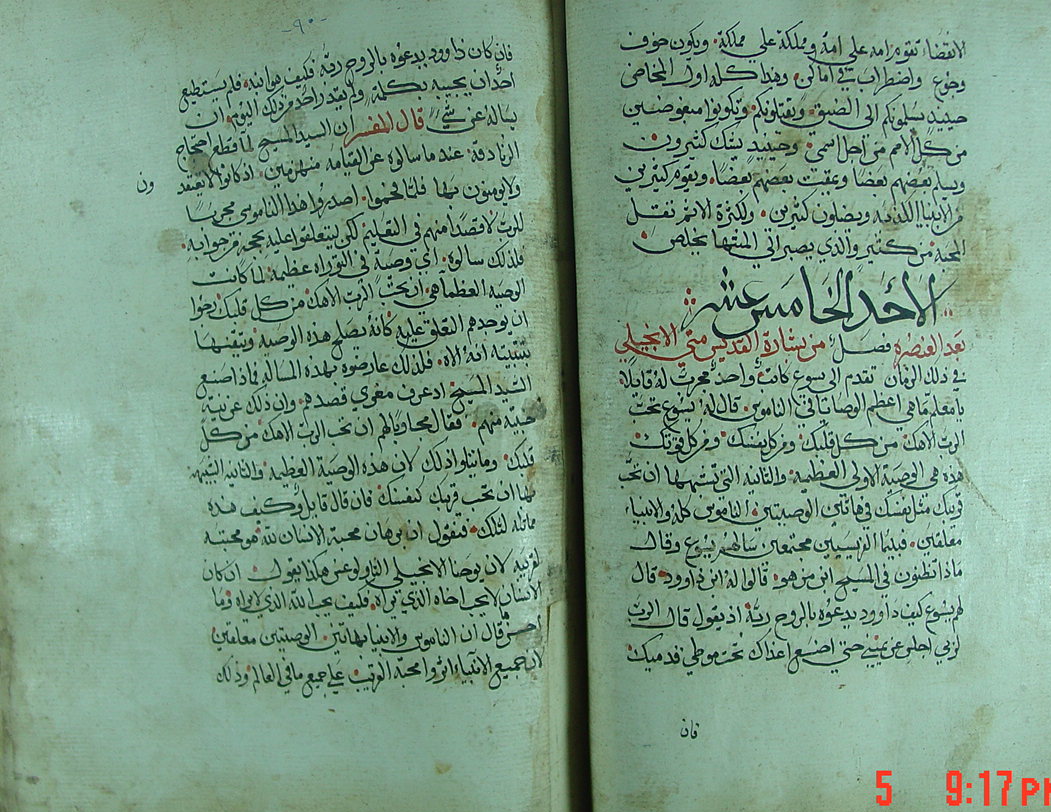 الانقضا، تقوم امه علي امة ومملكة علي مملكة. ويكون خوف
وجوع واضطراب في اماكن. وهذا كله اول المخاض
حينيذ يسلمونكم الى الضيق. ويقتلونكم. وتكونوا مبغوضين
من كل الامم من اجل اسمي. وحينيذ يشك كثيرون
ويسلم بعضهم بعضا. ويمقت بعضهم بعضا. ويقوم كثيرين
من الانبيا الكذبه ويضلون كثيرين. ولكثرة الاثم تقل
المحبة من كثير والذي يصبر الي المنتها يخلص
الاحد الخامس عشر
بعد العنصره فصل من بشارة القديس متي الانجيلي
في ذلك الزمان تقدم الي يسوع كاتب واحد مجرب له قايلا.
يا معلم ما هي اعظم الوصايا في الناموس. قال له يسوع تحب
الرب الاهك من كل قلبك. ومن كل نفسك. ومن كل قوتك
هذه هي الوصية الاولي العظيمة. والثانيه التي تشبهها ان تحب
قريبك مثل نفسك في هاتين الوصيتين. الناموس كله والانبياء
معلقين. فبينما الفريسيين مجتمعين سالهم يسوع وقال
ماذا تظنون في المسيح ابن من هو. قالوا له ابن داوود. قال
لهم يسوع كيف داوود يدعوه بالروح ربة اذ يقول قال الرب
لربي اجلس عن يميني حتي اضع اعداك تحت موطي قدميك
فان
٩٠
فان كان داوود يدعوه بالروح ربة فكيف هو ابنه. فلم يستطيع
احد ان يجيبه بكلمة ولم يقدر احد من ذلك اليوم ان
يساله عن شي قال المفسر ان السيد المسيح لما قطع احتجاج
الزنادقة عند ما سالوه عن القيامة منهزمين. اذ كانوا لا يعتقد
ون
ولا يومنون بها فلما افحموا. اصدروا هذا الناموسي مجربا
للرب لا قصدا منهم في التعليم لكي يتعلقوا عليه بحجه من جوابه.
فلذلك سالوه. اي وصية في التوراه عظيمة. لما كانت
الوصيه العظما هي ان تحب الرب الاهك من كل قلبك رجوا
ان يوجدهم التعلق عليه كانه يصلح هذه الوصية وينقيها
بتثبيته انه الاه. فلذلك عارضوه بهذه المساله فماذا صنع
السيد المسيح اذ عرف مغزي قصدهم وان ذلك عن نية
خبيثه منهم. فقال مجاوبا لهم ان تحب الرب الاهك من كل
قلبك. وما يتلو ذلك لان هذه الوصية العظيمة والثانيه الشبيهه
بها ان تحب قريبك كنفسك فان قال قايل وكيف هذه
مماثله لتلك. فنقول ان برهان محبة الانسان لله هو محبته
لقريبه لان يوحنا الانجيلي الثاولوغس هكذا يقول ان كان
الانسان لا يحب اخاه الذي يراه. فكيف يحب الله الذي لا يراه وما
احسن قال ان الناموس والانبيا بهاتين الوصيتين معلقين
لان جميع الانبياء اثروا محبة القريب علي جميع ما في العالم وذلك
5 9:17 PM